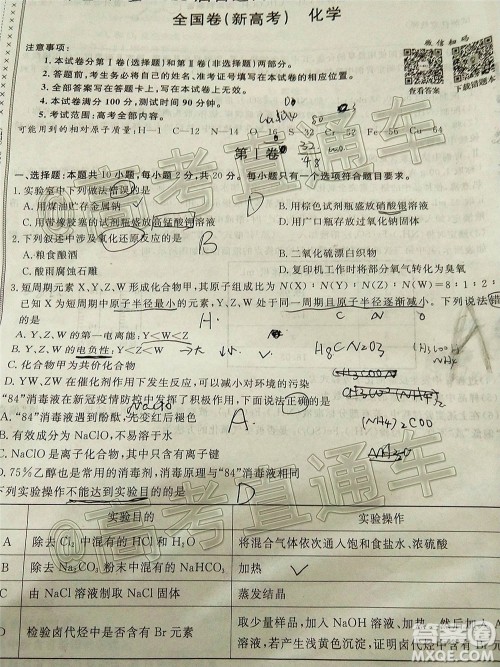 全国卷(新高考) 化学
微信扫码
注意事项:
1.本试卷分第Ⅰ卷(选择题)和第Ⅱ卷(非选择题)两部分。
2.答题前,考生务必将自己的姓名、准考证号填写在试本卷的相应位置。
3.全部答案写在答题卡上,写在本试卷上无效。
4.本试卷满分100分,测试时间90分钟。
5.考试范围:高考全部内容。
查看答案
下载错题本
可能用到的相对原子质量:H—1 C—12 N—14 O—16 S—32 Cr—52 Fe—56 Cu—64
第Ⅰ卷
一、选择题:本题共10小题,每小题2分,共20分。每小题只有一个选项符合题目要求。
1.实验室中下列做法错误的是
D
A.用煤油贮存金属钠
B.用棕色试剂瓶盛放硝酸银溶液
C.用带橡胶塞的试剂瓶盛放高锰酸钾溶液
D.用广口瓶存放过氧化钠固体
2.下列叙述中涉及氧化还原反应的是
B
A.粮食酿酒
B.二氧化硫漂白织物
C.酸雨腐蚀石雕
D.复印机工作时将部分氧气转化为臭氧
3.短周期元素X、Y、Z、W形成化合物甲,其原子个数关系为N(X):N(Y):N(Z):N(W)=8:1:2:
已知X为短周期中原子半径最小的元素,Y、Z、W处于同一周期且原子半径逐渐减小。下列说法错
的是
H.
C N O
A.Y、Z、W的第一电离能:Y<W<Z
B.Y、Z、W的电负性:Y<Z<W
H8CN2O3
C.化合物甲为共价化合物
D.YW、ZW在催化剂作用下发生反应,可以减小对环境的污染
“84”消毒液在新冠疫情防控中发挥了积极作用,下面说法正确的是
NaClO
A.
A.“84”消毒液遇到酚酞,先变红后褪色
(NH4)2COO
B.有效成分为NaClO,不易溶于水
C.NaClO是离子化合物,其中只含有离子键
D.75%乙醇也是常用的消毒剂,消毒原理与“84”消毒液相同
下列实验操作不能达到实验目的的是
D
实验目的
实验操作
A
除去Cl₂中混有的HCl和H₂O
将混合气体依次通入饱和食盐水、浓硫酸
B
除去Na₂CO₃粉末中混有的NaHCO₃
加热
C
由NaCl溶液制取NaCl固体
蒸发结晶
D
检验卤代烃中是否含有Br元素
取少量样品,加入NaOH溶液加热,再加入Ag
溶液,若产生浅黄色沉淀,证明卤代烃中含有B
@高考直通车
@高考直通车